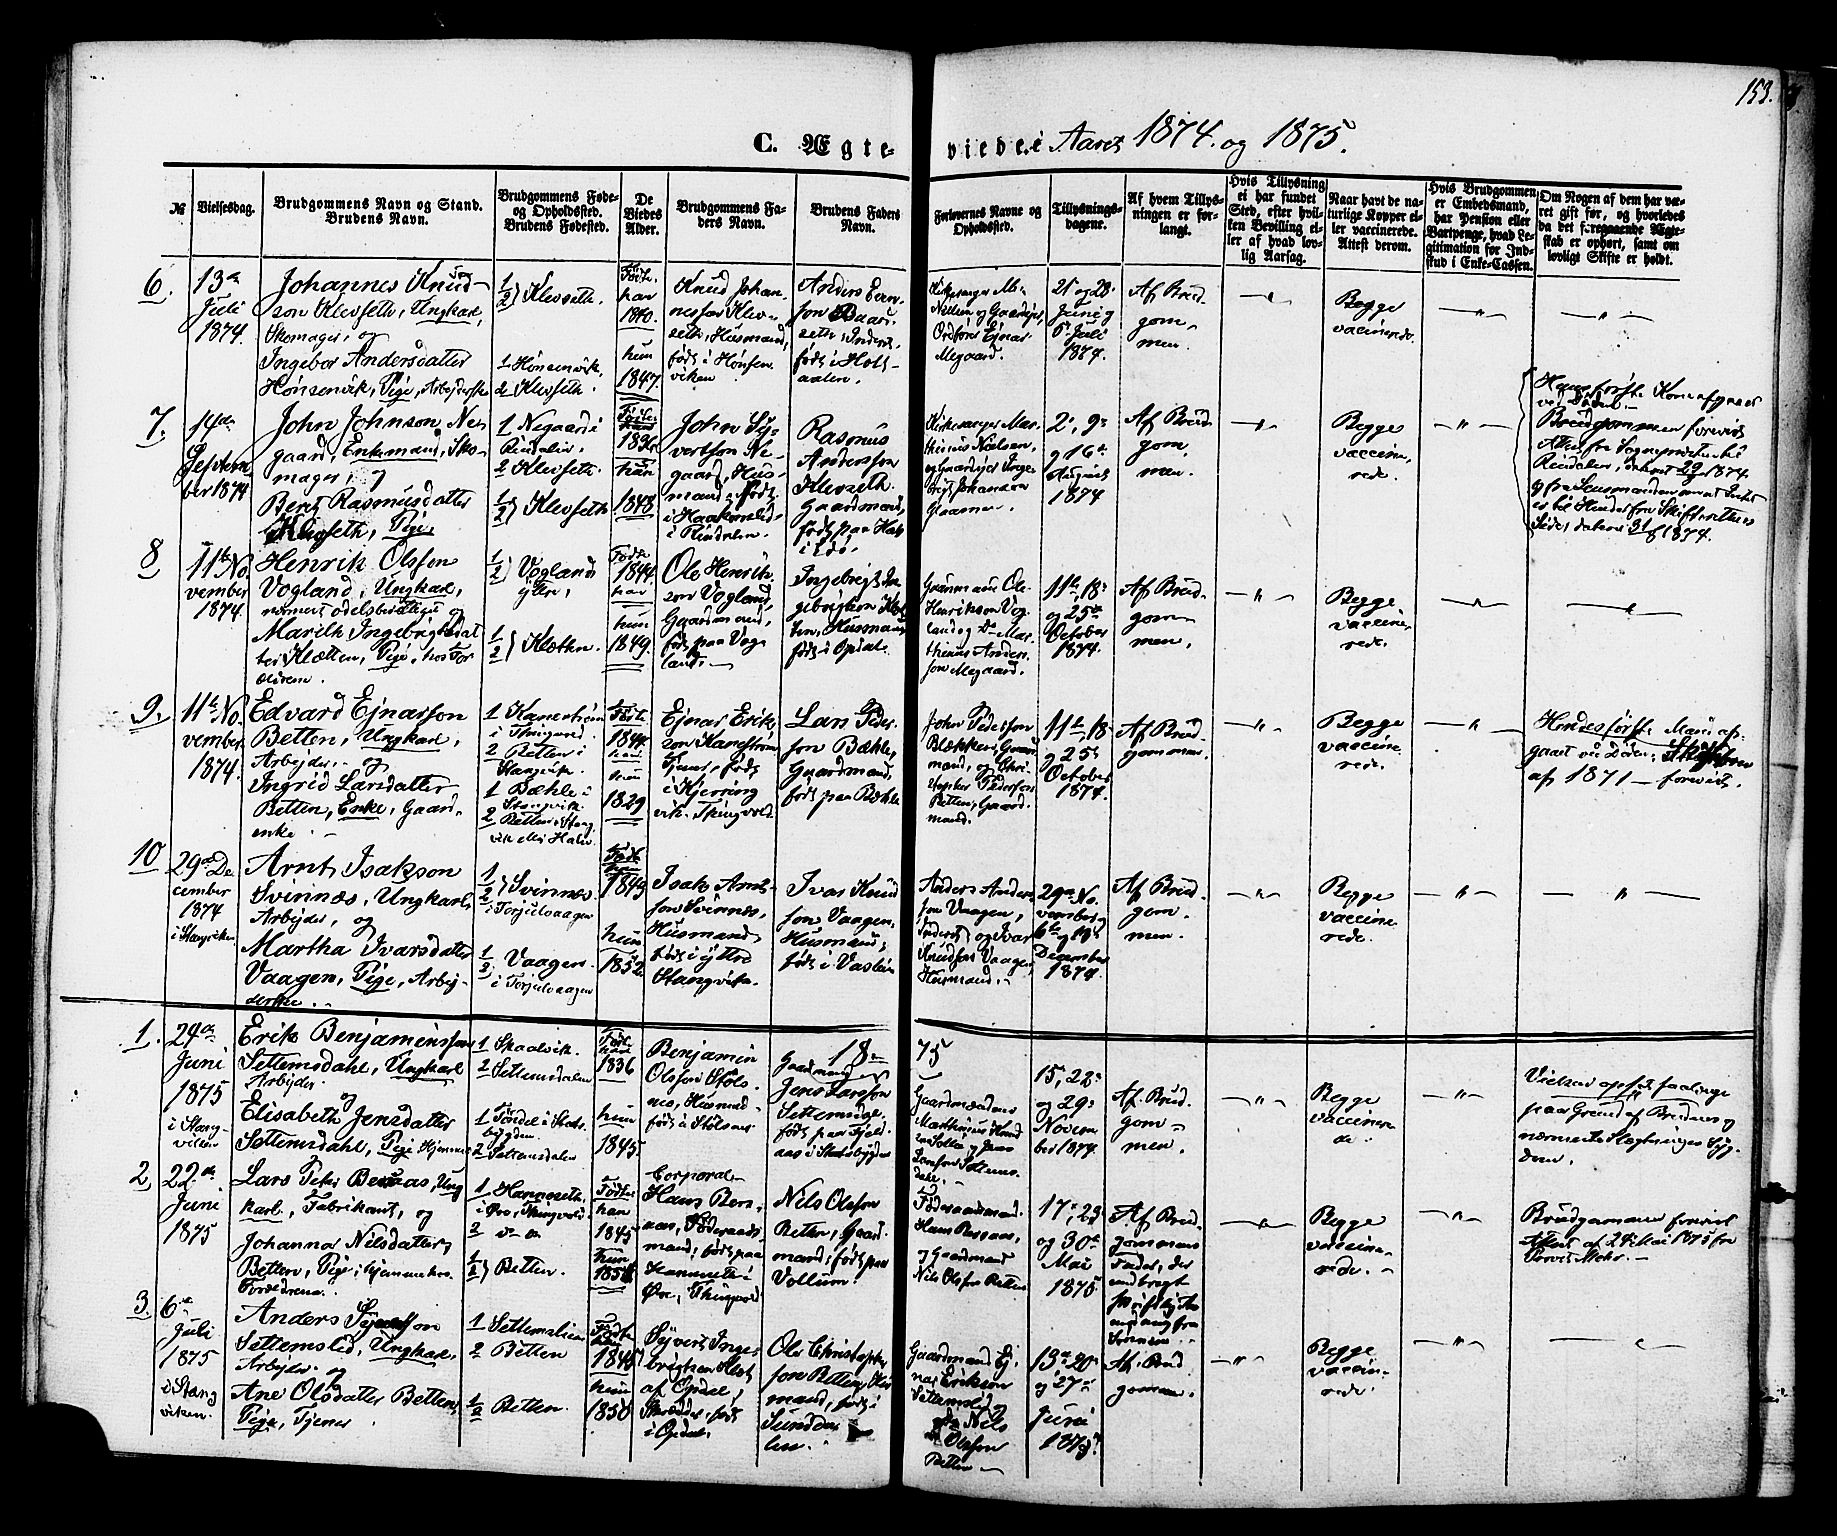 153.
C. Ægte- viede i Aaret 1874. og 1875.
№
Vielsesdag.
Brudgommens Navn og Stand.
Brudens Navn.
Brudgommens Føde-
og Opholdssted.
Brudens Fødested.
De
Viedes
Alder.
Brudgommens Fa-
ders Navn.
Brudens Faders
Navn.
Forlovernes Navne og
Opholdssted.
Tillysnings-
dagene.
Af hvem Tillys-
ningen er for-
langt.
Hvis Tillysning
ei har fundet
Sted, efter hvil-
ken Bevilling el-
ler af hvad lov-
lig Aarsag.
Naar havt de na-
turlige Kopper el-
ler vaccinerede.
Attest derom.
Hvis Brudgommen
er Embedsmand,
har Pension eller
Vartpenge, hvad Le-
gitimation for Ind-
skud i Enke-Cassen.
Om Nogen af dem har væ-
ret gift før, og hvorledes
da det foregaaende Ægte-
skab er ophørt, samt om
lovligt Skifte er holdt.
6.
13de
Juli
1874.
Johannes Knud-
son Klevseth, Ungkarl,
Skomager, og
Ingebor Andersdatter
Hønsenvik, Pige, Arbejderske
1/2 } Klevseth.
1 Hønsenvik.
2 Klevseth.
Født
han
1840.
hun
1847.
Knud Johan-
nesson Klev-
seth, Husmand,
født i Hønsen
viken
Anders Even-
son Baard-
seth, Inderst,
født i Holt-
aalen.
Nielsen og Gaardejer,
Ordfører Ejnar
Megaard.
21 og 28
Juni og
5te Juli
1874.
Af Brud-
gom-
men.
Begge
vaccinerede.
7.
14de
Septem
ber 1874
John Johnson, Ne-
gaard, Enkemand, Sko-
mager, og
Berit Rasmusdatter
Klevseth, Pige
1 Negaard i
Rindalen
2 Klevseth.
1/2 } Klevseth
Født
1836
hun
1848.
John Sy-
vertson Ne-
gaard, Hus-
mand, født
i Haakenslid
i Rindalen.
Rasmus
Anderssen
Klevseth
Gaardmand,
født paa Hals
i Edø.
Kirkesanger Mar-
thinus Nielsen,
og Gaardejer Inge-
brigt Johansen
Gaamen.
2, 9
og 16de
August
1874
Af Brud-
gom,
men.
Begge
vaccine,
rede.
Hans første Kone afgaaet
ved Døden.
Brudgommen foreviist
Attest fra Sognepræsten til
Rindalen, dateret 29/7 1874
8
11te No.
vember
1874.
Henrik Olsson
Vogland, Ungkarl,
nærmest odelsberettiget og
Marith Ingebrigtsdat
ter Kletten, Pige, hos For
ældrene.
1/2 } Vogland
ytre,
1/2 } Kletten.
Født
1844.
han
hun
1849.
Ole Henrik-
son Vogland,
Gaardmand,
født paa Vog
land.
Ingebrigt In-
gebrigtson Klet
ten, Husmand
født i Opdal.
Gaardmand Ole
Henrikson Vog-
land og Do Mar-
thinus Anders
son Megaard.
11te, 18
og 25de
October
1874.
Af Brud-
gom-
men,
Begge
vaccine,
rede.
9.
11te No.
vember
1874.
Edvard Ejnarson
Betten, Ungkarl,
Arbejder. og
Ingrid Larsdatter
Betten, Enke, Gaard-
enke.
1 Kanestrøm
i Thingvold
2 Betten i
Stangvik.
1 Bæhle i
Stangvik.
2 Betten i Stang
Født
1844.
hun
1829.
Ejnar Erik-
son Kanestrøm
Tjener, født
i Kjerring
vik, Thingvold
Lars Peder-
son Bæhle,
Gaardmand,
født paa Bæhle
John Pederson
Blekken, Gaard
mand, og Chri-
stopher Pederson
Betten, Gaard
mand.
11te, 18
og 25
October
1874.
Af Brud-
gommen.
Begge
vaccine,
rede.
Hendes første Mand af-
gaaet ved Døden,
af 1871 — foreviist.
10
29de De
cember
1874
i Stangviken
Arnt Isakson
Svinnæs, Ungkarl,
Arbejder, og
Martha Ivarsdatter
Vaagen, Pige, Arbej-
derske.
1/2 } Svinnæs
i Torjulvaagen
1/2 } Vaagen
i Torjulvaagen
Født
1849
hun
1852.
Isak Arnt-
son Svinnæs,
Husmand
født i ytre
Stangvik.
Ivar Knud
son Vaagen,
Husmand,
født i Vaslien
Anders Anders
son Vaagen,
Inderst, og Ivar
Knudson Vaagen,
Husmand.
29de No.
vember,
6te og 13
December
1874.
Af Brud-
gom.
men.
Begge
vaccine
rede.
18 75
1.
24de
Juni
1875
i Stang-
viken
Erik Benjaminsson
Settemsdahl, Ungkarl
Arbejder.
og
Elisabeth Jensdatter
Settemsdahl, Pige Hjemme
1 Skaalvik.
2 Settemsdalen
1 Fordel i Stads
bygden
2 Settemsdalen
Født
han
1836
hun
1845.
Benjamin
Olsson Støls-
næs, Husmand-
født i Stølsnæs
Gaardmand
Jens Larsson
Settemsdal.
født paa Fjeld
aas i Stadsbygden
Gaardmændene
Marthinus Knud
son Solli og Jens
Larsson Settems-
dahl.
15, 22
og 29
Novem
ber 1874.
Af Brud.
gom-
men.
Begge
vaccinere
de.
Vielsen opsat saalænge
paa Grund af Brudens og
nærmeste Slægtninges Syg
dom.
2,
22de
Juni
1875
Lars Peter Bernaas, Ung
karl, Fabrikant, og
Johanna Nilsdatter
Betten, Pige, hjemme hos
Forældrene.
1 Hanneseth
i Øre, Thingvold
2 do
1/2 } Betten.
Født
han
1845
hun
Corporal
Hans Bern-
aas, Føderaads
mand, født paa
Hanneseth i
Øre, Thingvold
Nils Olsson
Betten, Gaard
mand, født paa
Vollum.
Føderaadmand
Hans Bernaas,
og Gaardmand
Nils Olsson Betten
17, 23
og 30te
Mai
1875
Af Brud
gommens
Fader, der
medbragt
skriftlig An
modning fra
Sønnen.
Begge
vaccine.
rede.
Brudgommen foreviist
Attest af 24 Mai 1875 fra
Provst Mohr.
3.
6te
Juli
1875
i Stang
viken.
Anders Syvertson
Settemslid, Ungkarl,
Arbejder. og
Ane Olsdatter Betten
Pige, Tjener
1 Settemslien
2 Betten
1/2 } Betten.
Født
han
1845
hun
1850
Syvert Inge-
brigtsen Klet
af Opdal,
Skrædder, født
i Opdal.
Ole Christopher
son Betten, Hus
mand, født i
Sunddal
Gaardmand Ej-
nar Erikson
Settemslid og
do Nils
Olsson
Betten
13de 20
og 27de
Juni
1875
Af Brud
gommen.
Begge
vaccine-
rede.